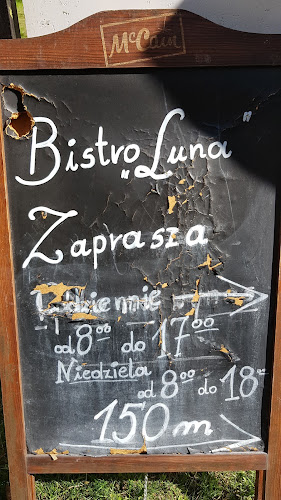 McCain
Bistro „Luna
Zaprasza
Codziennie
od 8⁰⁰ do 17⁰⁰
Niedziela
od 8⁰⁰ do 18⁻
150m